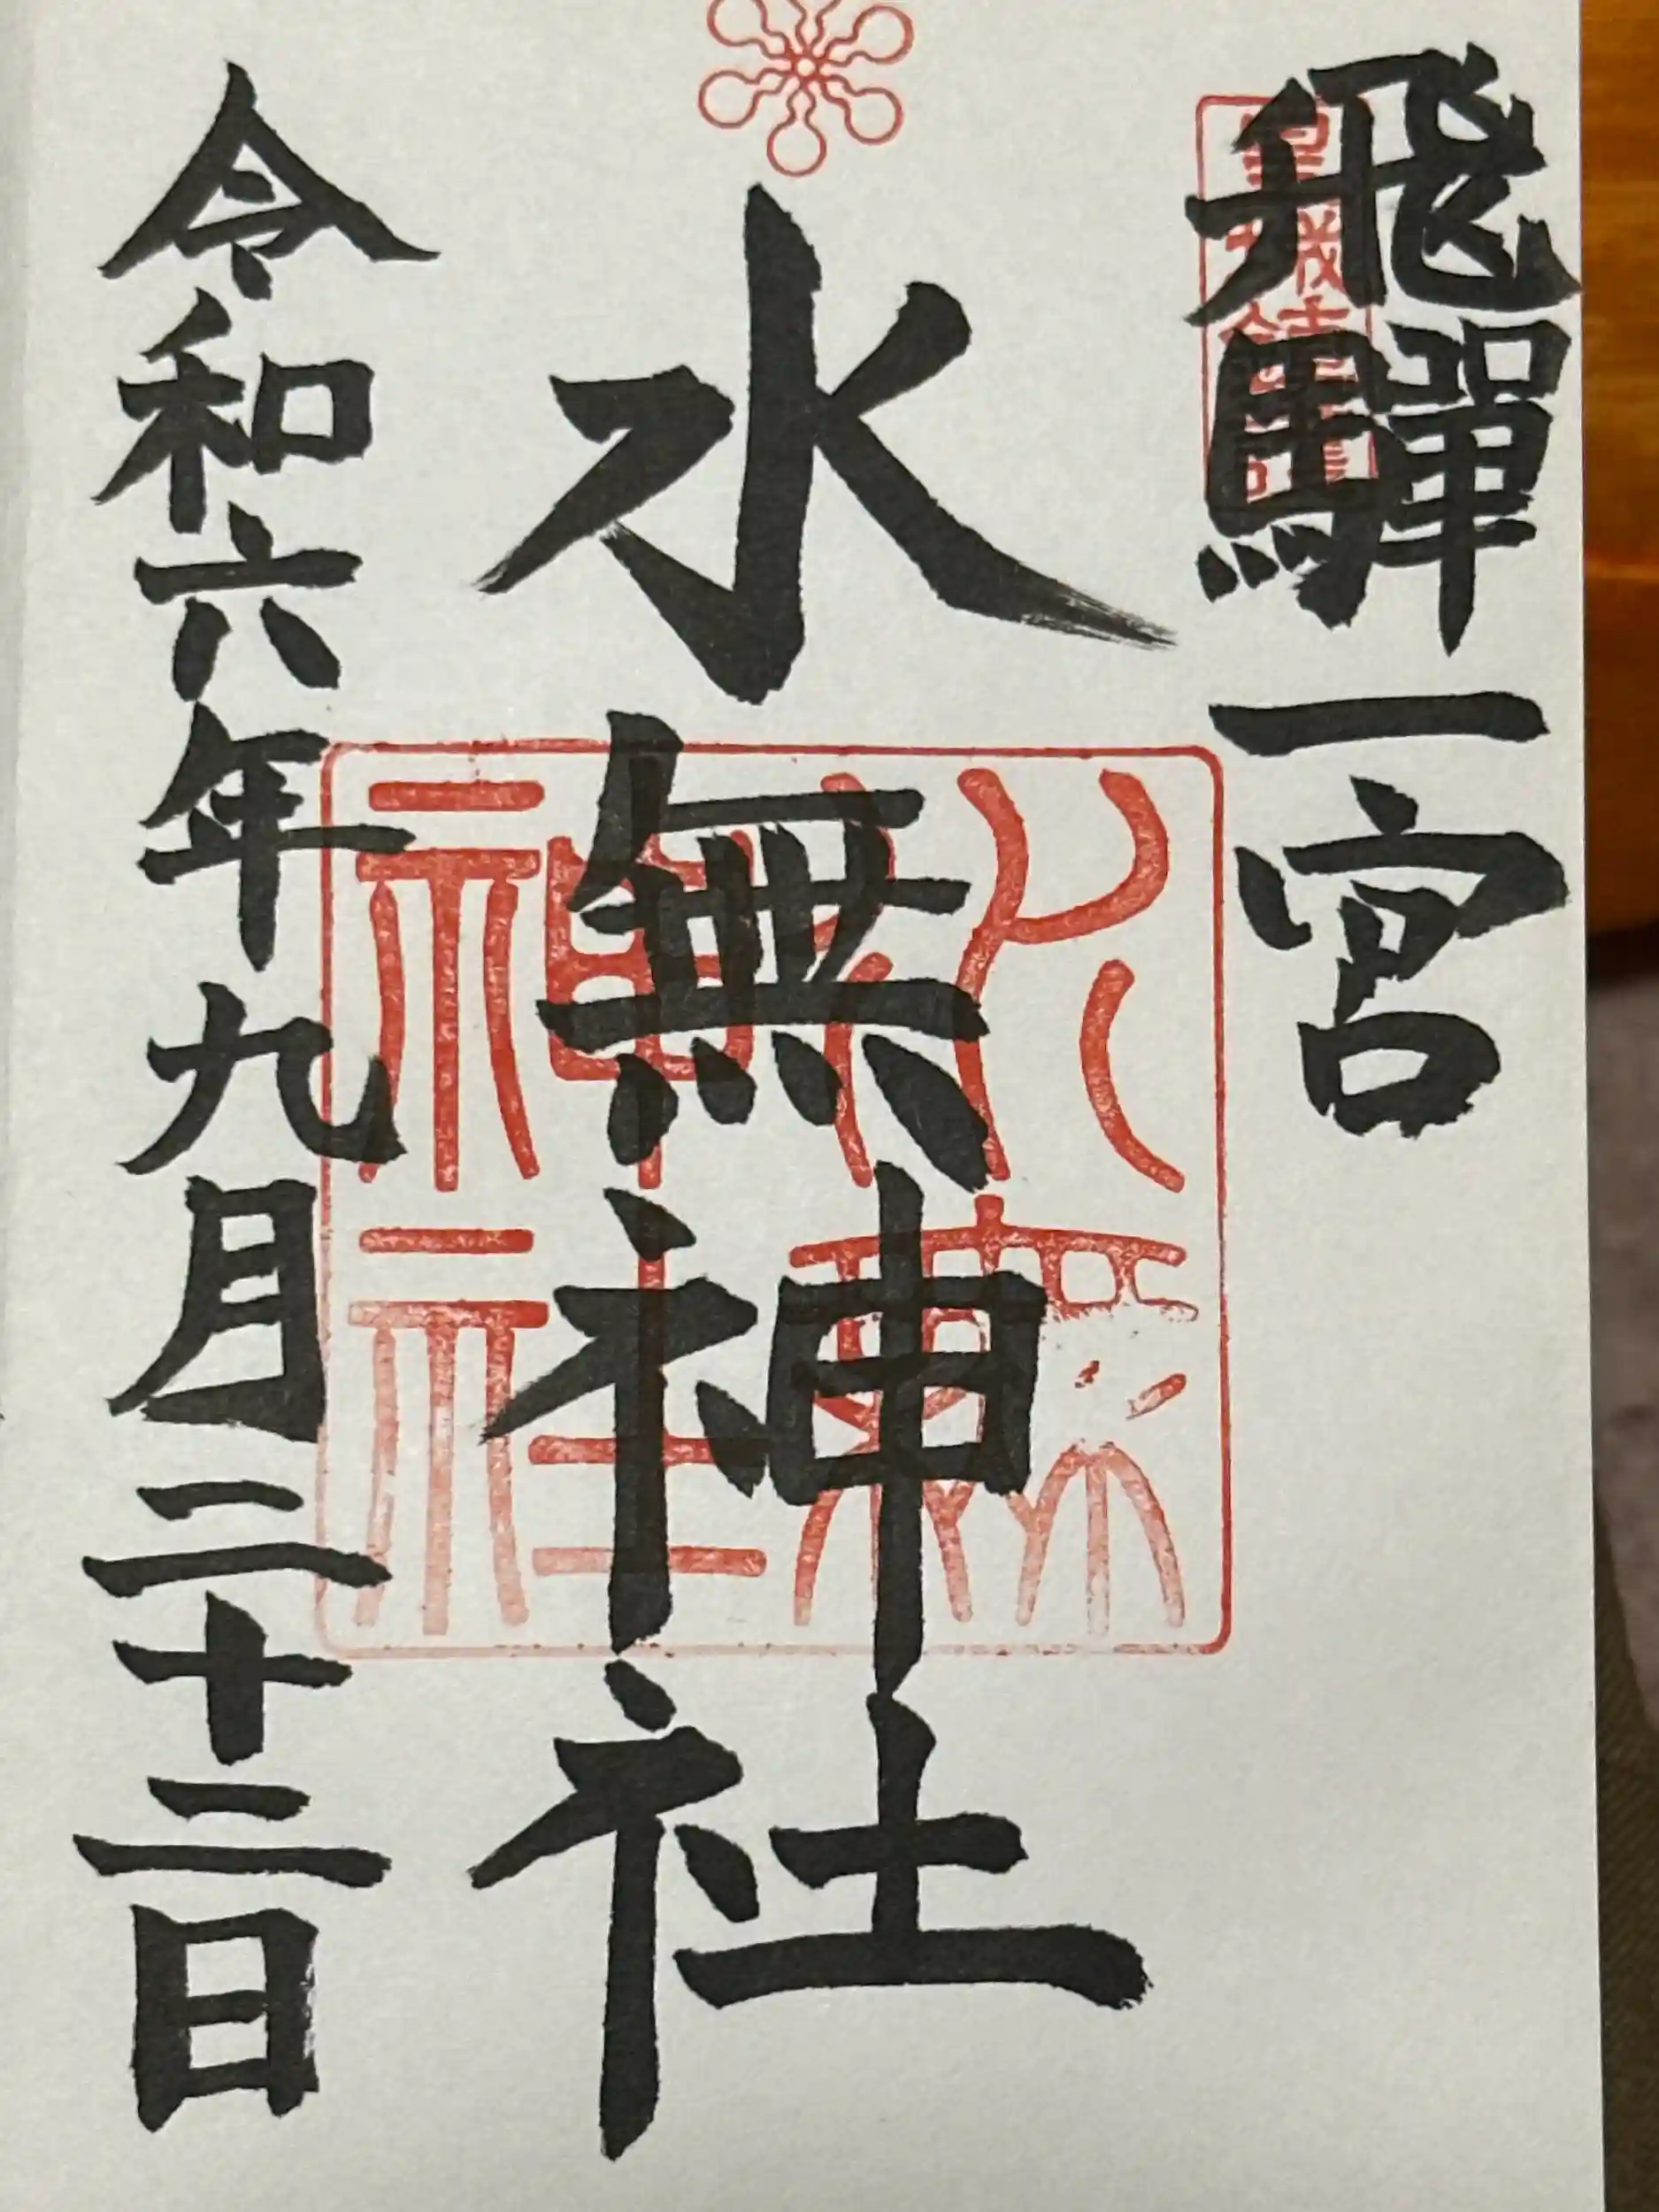 飛驒一宮
水無神社
令和六年九月二十二日
水無神社